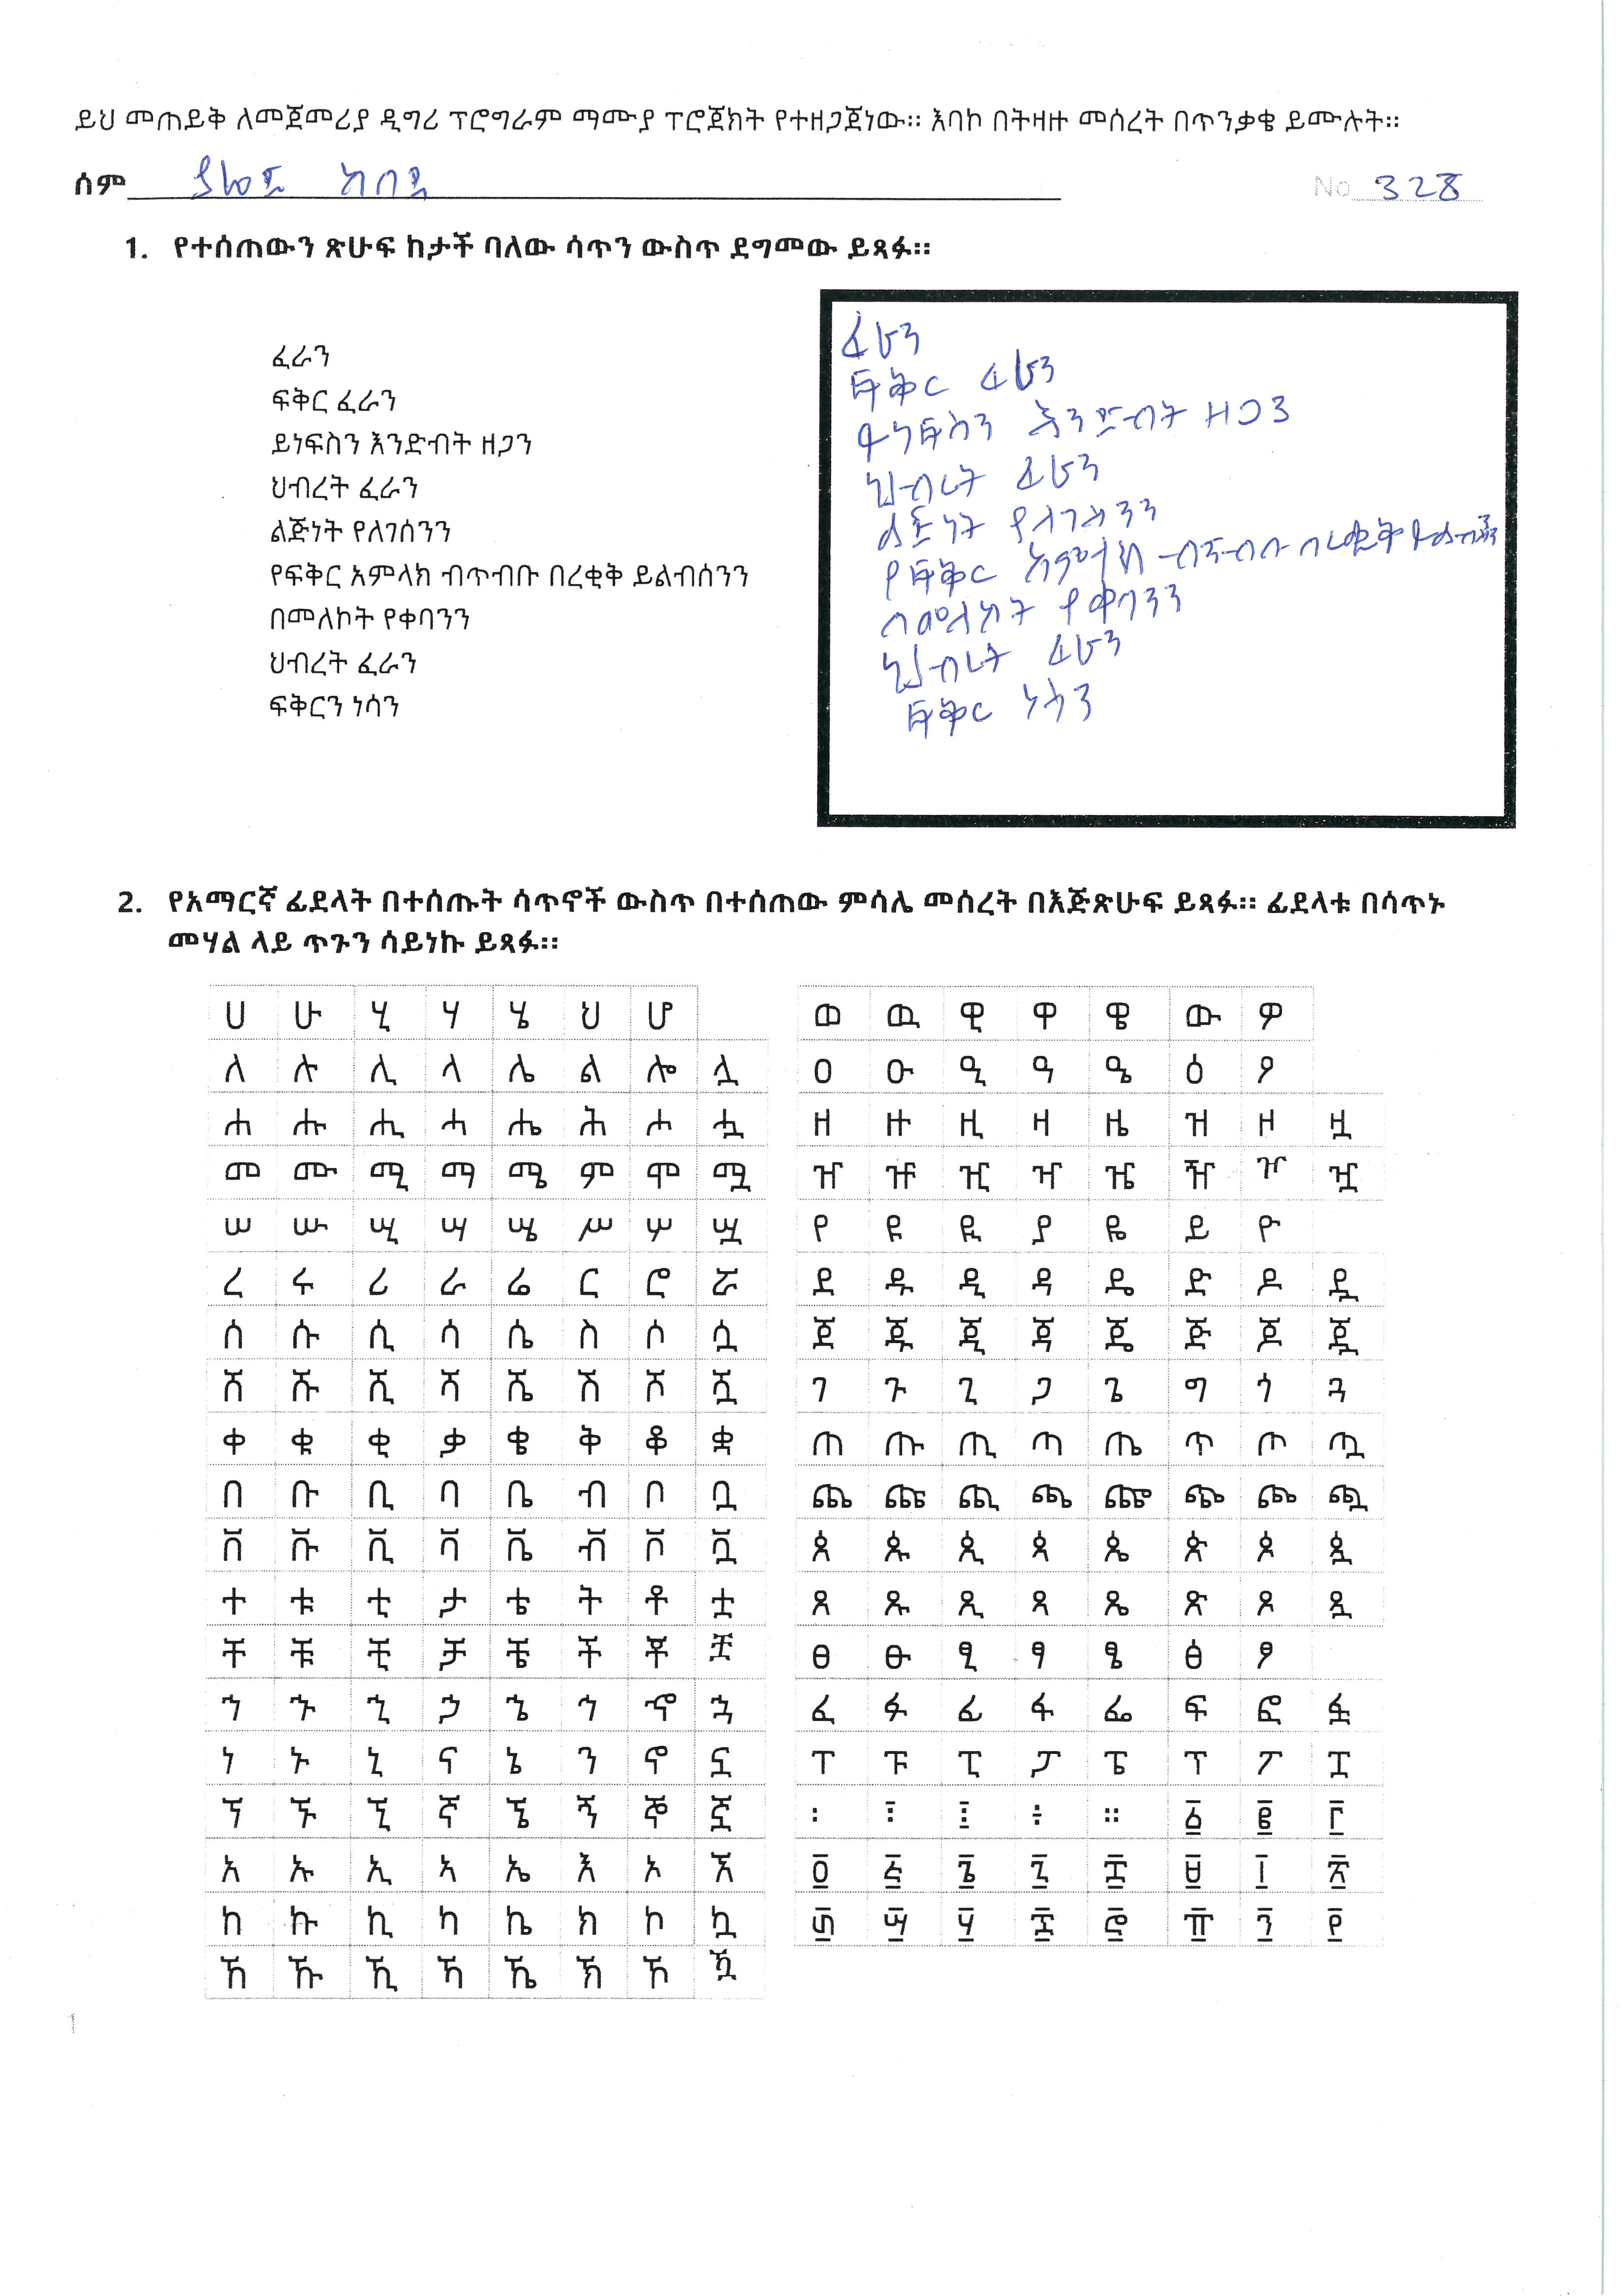 ይህ መጠይቅ ለመጀመሪያ ዲግሪ ፕሮግራም ማሙያ ፕሮጀክት የተዘጋጀነው፡፡ እባኮ በትዛዙ መሰረት በጥንቃቄ ይሙሉት፡፡
ሰም አበበ
No 328
1. የተሰጠውን ጽሁፍ ከታች ባለው ሳጥን ውስጥ ደግመው ይጻፉ፡፡
ፈራን
ፍቅር ፈራን
ይነፍስን እንድብት ዘጋን
ህብረት ፈራን
ልጅነት የለገሰንን
የፍቅር አምላክ ብጥብቡ በረቂቅ ይልብሰንን
በመለኮት የቀባንን
ህብረት ፈራን
ፍቅርን ነሳን
ፈራን
ፍቅር ፈራን
ይነፍስን እንድብት ዘጋን
ህብረት ፈራን
ልጅነት የለገሰንን
የፍቅር አምላክ ብጥብቡ በረቂቅ ይልብሰንን
በመለኮት የቀባንን
ህብረት ፈራን
ፍቅር ነሳን
2. የአማርኛ ፊደላት በተሰጡት ሳጥኖች ውስጥ በተሰጠው ምሳሌ መሰረት በእጅጽሁፍ ይጻፉ፡፡ ፊደላቱ በሳጥኑ
መሃል ላይ ጥጉን ሳይነኩ ይጻፉ፡፡
ሀ ሁ ሂ ሃ ሄ ህ ሆ
ለ ሉ ሊ ላ ሌ ል ሎ ሏ
ሐ ሑ ሒ ሓ ሔ ሕ ሖ ሗ
መ ሙ ሚ ማ ሜ ም ሞ ሟ
ሠ ሡ ሢ ሣ ሤ ሥ ሦ ሧ
ረ ሩ ሪ ራ ሬ ር ሮ ሯ
ሰ ሱ ሲ ሳ ሴ ስ ሶ ሷ
ሸ ሹ ሺ ሻ ሼ ሽ ሾ ሿ
ቀ ቁ ቂ ቃ ቄ ቅ ቆ ቋ
በ ቡ ቢ ባ ቤ ብ ቦ ቧ
ቨ ቩ ቪ ቫ ቬ ቭ ቮ ቯ
ተ ቱ ቲ ታ ቴ ት ቶ ቷ
ቸ ቹ ቺ ቻ ቼ ች ቾ ቿ
ኀ ኁ ኂ ኃ ኄ ኅ ኆ ኋ
ነ ኑ ኒ ና ኔ ን ኖ ኗ
ኘ ኙ ኚ ኛ ኜ ኝ ኞ ኟ
አ ኡ ኢ ኣ ኤ እ ኦ ኧ
ከ ኩ ኪ ካ ኬ ክ ኮ ኳ
ኸ ኹ ኺ ኻ ኼ ኽ ኾ ዃ
ወ ዉ ዊ ዋ ዌ ው ዎ
ዐ ዑ ዒ ዓ ዔ ዕ ዖ
ዘ ዙ ዚ ዛ ዜ ዝ ዞ ዟ
ዠ ዡ ዢ ዣ ዤ ዥ ዦ ዧ
የ ዩ ዪ ያ ዬ ይ ዮ
ደ ዱ ዲ ዳ ዴ ድ ዶ ዷ
ጀ ጁ ጂ ጃ ጄ ጅ ጆ ጇ
ገ ጉ ጊ ጋ ጌ ግ ጎ ጓ
ጠ ጡ ጢ ጣ ጤ ጥ ጦ ጧ
ጨ ጩ ጪ ጫ ጬ ጭ ጮ ጯ
ጰ ጱ ጲ ጳ ጴ ጵ ጶ ጷ
ጸ ጹ ጺ ጻ ጼ ጽ ጾ ጿ
ፀ ፁ ፂ ፃ ፄ ፅ ፆ
ፈ ፉ ፊ ፋ ፌ ፍ ፎ ፏ
ፐ ፑ ፒ ፓ ፔ ፕ ፖ ፗ
፡ ፣ ፤ ÷ ፡፡ ፩ ፪ ፫
፬ ፭ ፮ ፯ ፰ ፱ ፲ ፳
፴ ፵ ፶ ፷ ፸ ፹ ፺ ፻
1